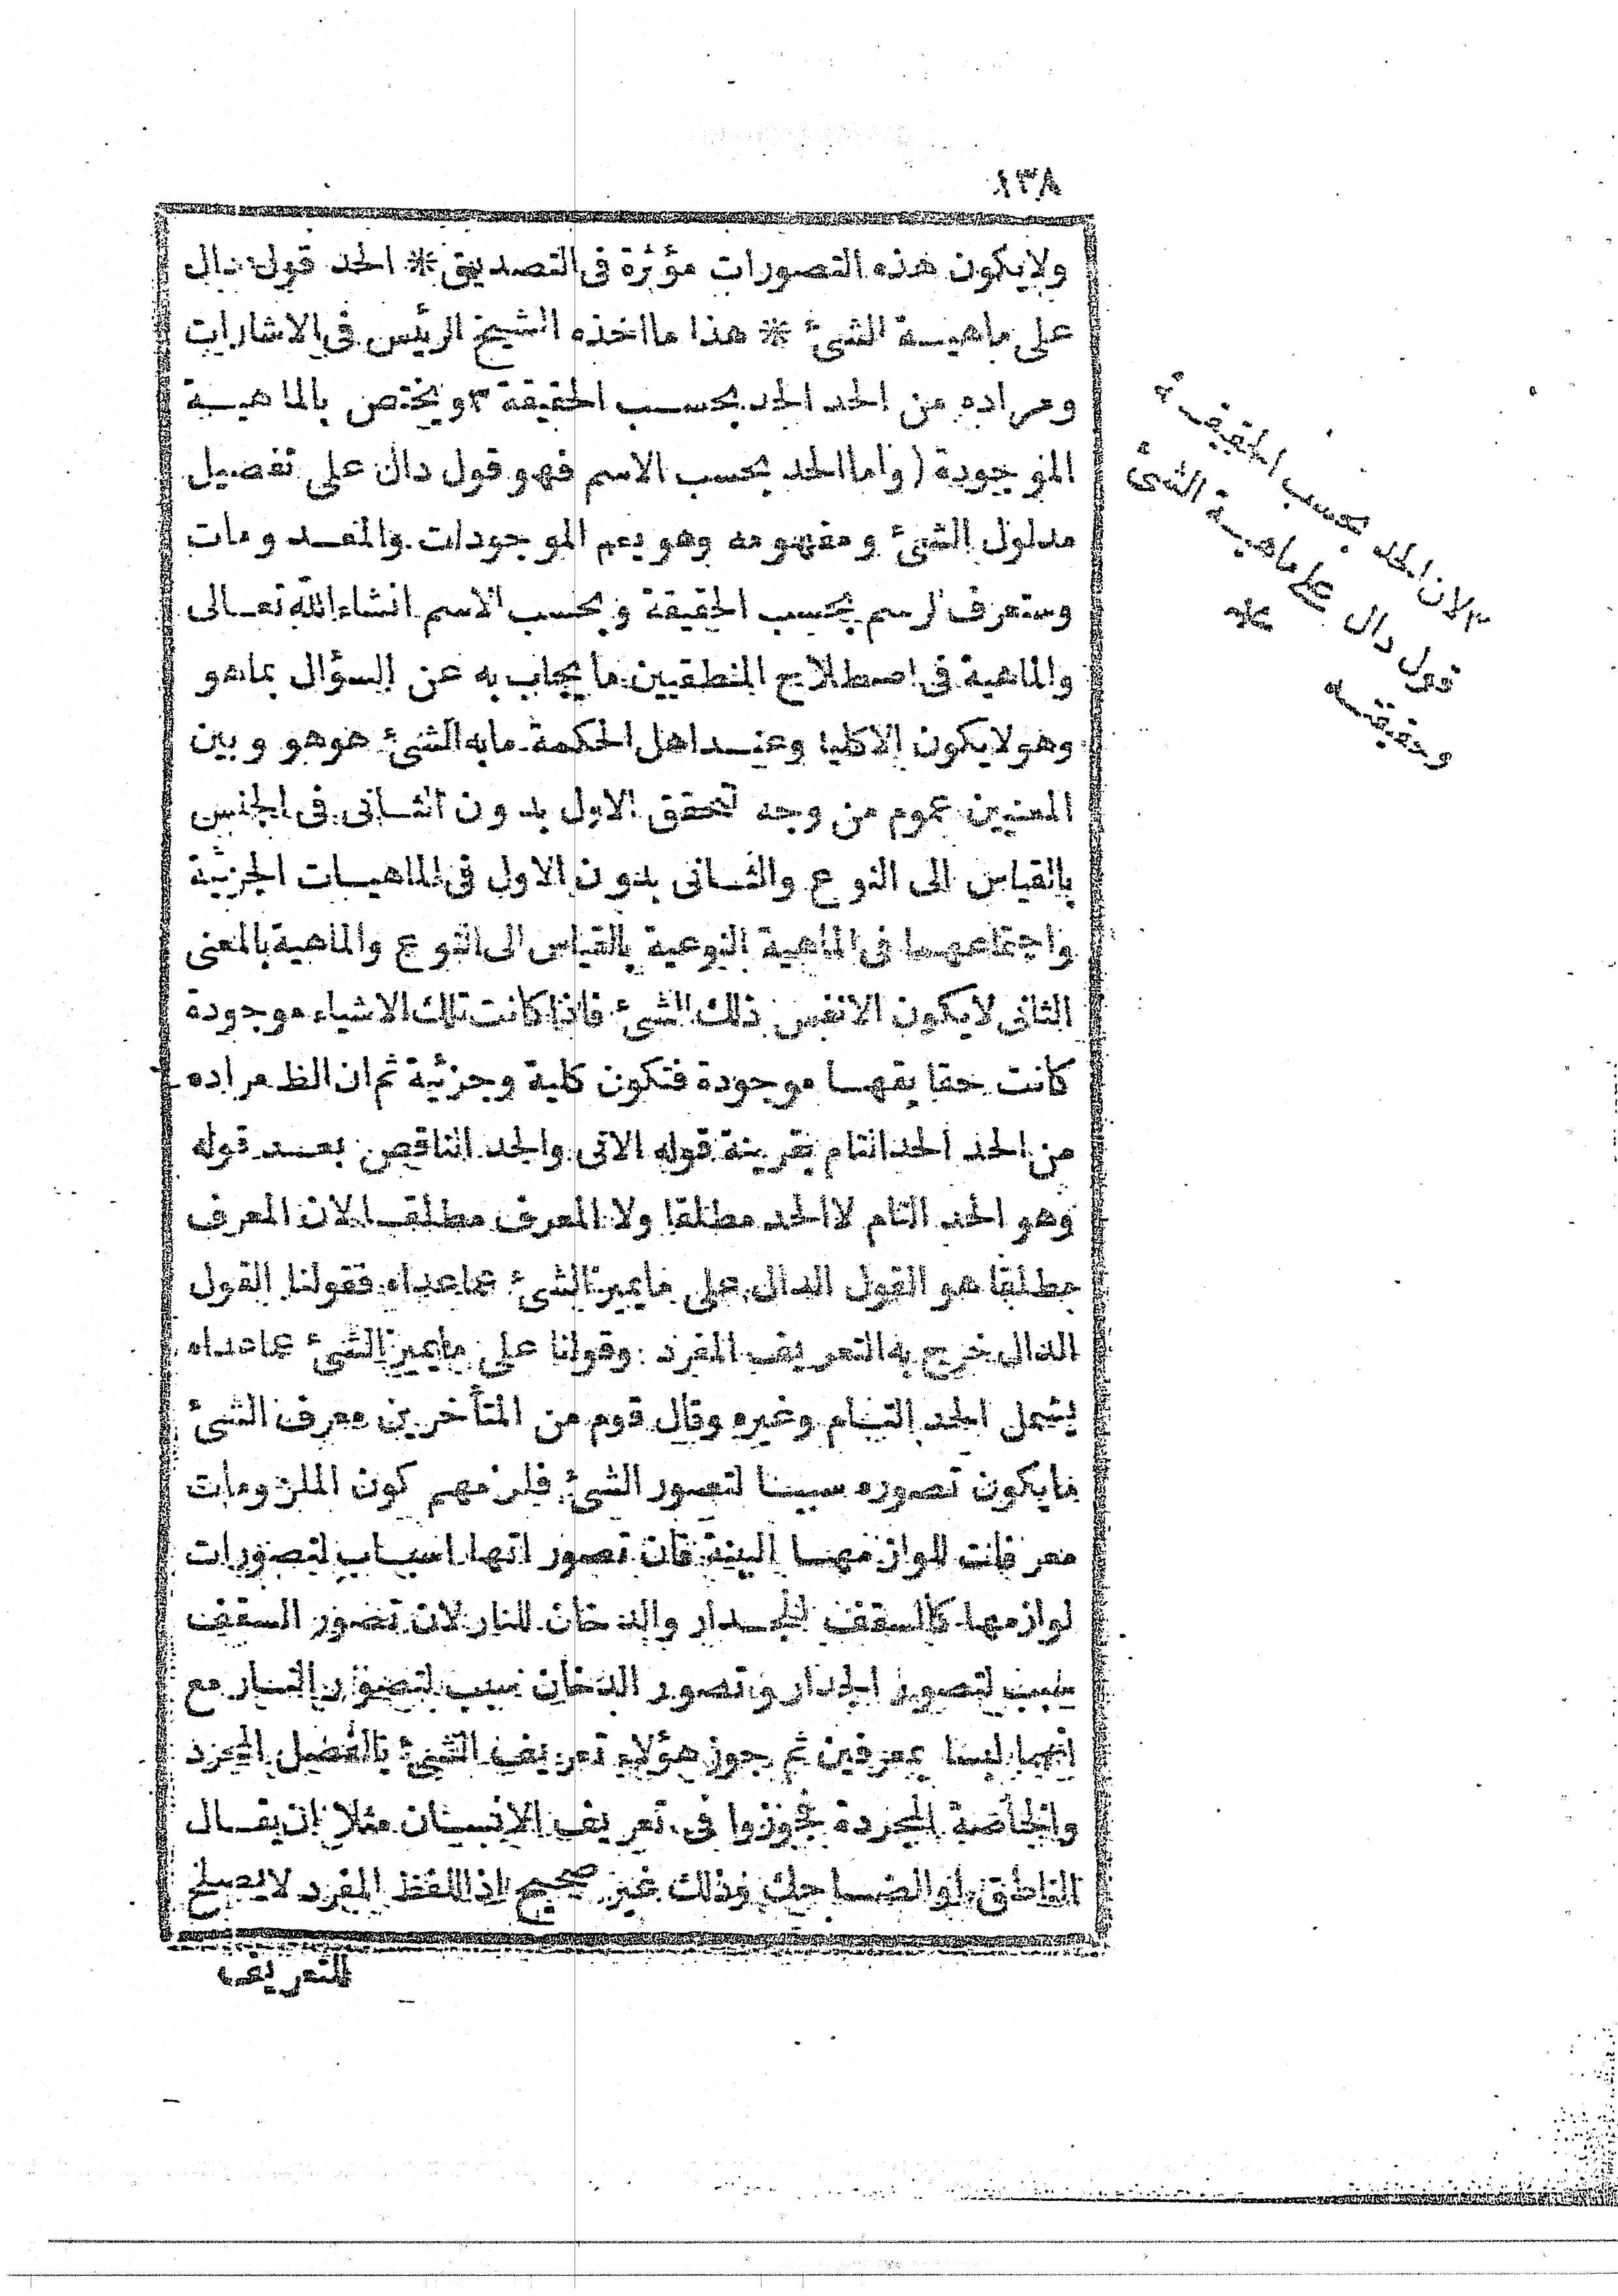 ١٣٨
ولايكون هذه التصورات مؤثرة فى التصديق * الحد قول دال
على ماهيسة الشئ * هذا مااخذه الشيخ الرئيس فى الاشارات
ومراده من الحد الحد بحسب الحقيقة ٣ ويختص بالماهيسة
الموجودة (واماالحد بحسب الاسم فهو قول دال على تفصيل
مدلول الشئ ومفهومه وهو يعم الموجودات والمعدومات
وستعرف الرسم بحسب الحقيقة وبحسب الاسم انشاءالله تعالى
والماهية فى اصطلاح المنطقيين مايجاب به عن السؤال بماهو
وهولايكون الاكليا وعند اهل الحكمة مابه الشئ هوهو وبين
المعنيين عموم من وجه لتحقق الاول بدون الثانى فى الجنس
بالقياس الى النوع والثانى بدون الاول فى الماهيات الجزئية
واجتماعهما فى الماهية النوعية بالقياس الى النوع والماهية بالمعنى
الثانى لايكون الانفس ذلك الشئ فاذا كانت تلك الاشياء موجودة
كانت حقايقها موجودة فتكون كلية وجزئية ثم ان الظ مراده
من الحد الحد التام بقرينة قوله الاتى والحد الناقص بعد قوله
وهو الحد التام لاالحد مطلقا ولا المعرف مطلقا لان المعرف
مطلقا هو القول الدال على مايميز الشئ عماعداه فقولنا القول
الدال خرج به التعريف المفرد وقولنا على مايميز الشئ عماعداه
يشمل الحد التام وغيره وقال قوم من المتأخرين معرف الشئ
مايكون تصوره سببا لتصور الشئ فلزمهم كون الملزومات
معرفات للوازمها البينة فان تصوراتها اسباب لتصورات
لوازمها كالسقف للجدار والدخان للنار لان تصور السقف
سبب لتصور الجدار وتصور الدخان سبب لتصور النار مع
انهما ليسا بمعرفين ثم جوز هؤلاء تعريف الشئ بالفصل المجرد
والخاصة المجردة فجوزوا فى تعريف الانسان مثلا ان يقال
الناطق اوالضاحك وذلك غير صحيح اذاللفظ المفرد لايصلح
للتعريف
٣ لان الحد بحسب الحقيقة
قول دال على ماهية الشئ
وحقيقته